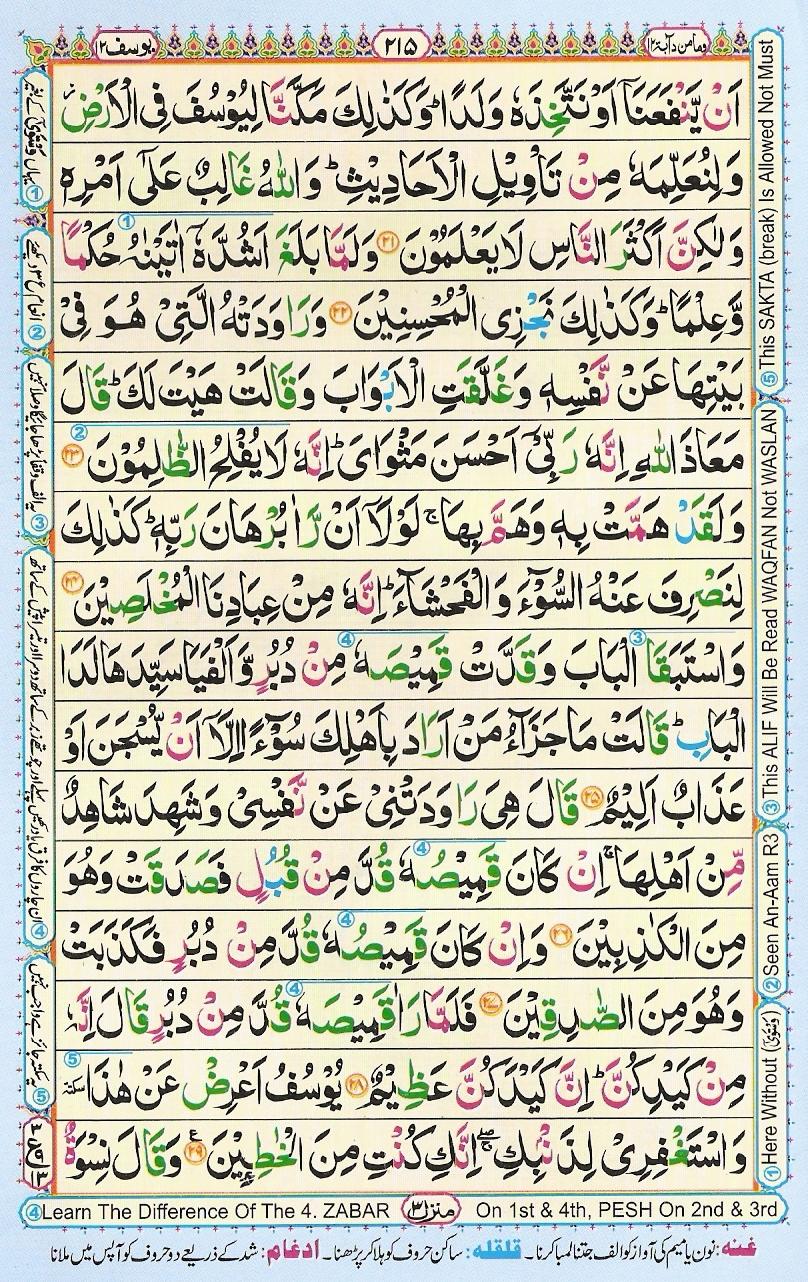 ومامن دآبة ١٢
٢١٥
يوسف ١٢
اَنْ يَّنْفَعَنَاۤ اَوْ نَتَّخِذَهٗ وَلَدًا ؕ وَكَذٰلِكَ مَكَّنَّا لِيُوْسُفَ فِى الْاَرْضِ ز
وَلِنُعَلِّمَهٗ مِنْ تَاْوِيْلِ الْاَحَادِيْثِ ؕ وَاللّٰهُ غَالِبٌ عَلٰۤى اَمْرِهٖ
وَلٰكِنَّ اَكْثَرَ النَّاسِ لَا يَعْلَمُوْنَ ٢١ وَلَمَّا بَلَغَ اَشُدَّهٗۤ اٰتَيْنٰهُ حُكْمًا
وَّعِلْمًا ؕ وَكَذٰلِكَ نَجْزِى الْمُحْسِنِيْنَ ٢٢ وَرَاوَدَتْهُ الَّتِىْ هُوَ فِىْ
بَيْتِهَا عَنْ نَّفْسِهٖ وَغَلَّقَتِ الْاَبْوَابَ وَقَالَتْ هَيْتَ لَكَ ؕ قَالَ
مَعَاذَ اللّٰهِ اِنَّهٗ رَبِّىْۤ اَحْسَنَ مَثْوَاىَ ؕ اِنَّهٗ لَا يُفْلِحُ الظّٰلِمُوْنَ ٢٣
وَلَقَدْ هَمَّتْ بِهٖ وَهَمَّ بِهَا ۚ لَوْلَاۤ اَنْ رَّاٰ بُرْهَانَ رَبِّهٖ ؕ كَذٰلِكَ
لِنَصْرِفَ عَنْهُ السُّوْٓءَ وَالْفَحْشَآءَ ؕ اِنَّهٗ مِنْ عِبَادِنَا الْمُخْلَصِيْنَ ٢٤
وَاسْتَبَقَا الْبَابَ وَقَدَّتْ قَمِيْصَهٗ مِنْ دُبُرٍ وَّاَلْفَيَا سَيِّدَهَا لَدَا
الْبَابِ ؕ قَالَتْ مَا جَزَآءُ مَنْ اَرَادَ بِاَهْلِكَ سُوْٓءًا اِلَّاۤ اَنْ يُّسْجَنَ اَوْ
عَذَابٌ اَلِيْمٌ ٢٥ قَالَ هِىَ رَاوَدَتْنِىْ عَنْ نَّفْسِىْ وَشَهِدَ شَاهِدٌ
مِّنْ اَهْلِهَا ۚ اِنْ كَانَ قَمِيْصُهٗ قُدَّ مِنْ قُبُلٍ فَصَدَقَتْ وَهُوَ
مِنَ الْكٰذِبِيْنَ ٢٦ وَاِنْ كَانَ قَمِيْصُهٗ قُدَّ مِنْ دُبُرٍ فَكَذَبَتْ
وَهُوَ مِنَ الصّٰدِقِيْنَ ٢٧ فَلَمَّا رَاٰ قَمِيْصَهٗ قُدَّ مِنْ دُبُرٍ قَالَ اِنَّهٗ
مِنْ كَيْدِكُنَّ ؕ اِنَّ كَيْدَكُنَّ عَظِيْمٌ ٢٨ يُوْسُفُ اَعْرِضْ عَنْ هٰذَا سكتة
وَاسْتَغْفِرِىْ لِذَنْۢبِكِ ۖۚ اِنَّكِ كُنْتِ مِنَ الْخٰطِـِٕيْنَ ٢٩ ع وَقَالَ نِسْوَةٌ
① Here Without (وَسْتَوٰى)
② Seen An-Aam R3
③ This ALIF Will Be Read WAQFAN Not WASLAN
⑤ This SAKTA (break) Is Allowed Not Must
③ یہ الف وقفا پڑھا جائیگا وصلا نہیں
⑤ یہ سکتہ جائز ہے واجب نہیں
④ Learn The Difference Of The 4. ZABAR منزل ٣ On 1st & 4th, PESH On 2nd & 3rd
غنہ: نون یا میم کی آواز کو الف جتنا لمبا کرنا۔ قلقلہ: ساکن حروف کو ہلا کر پڑھنا۔ ادغام: شد کے ذریعے دو حروف کو آپس میں ملانا